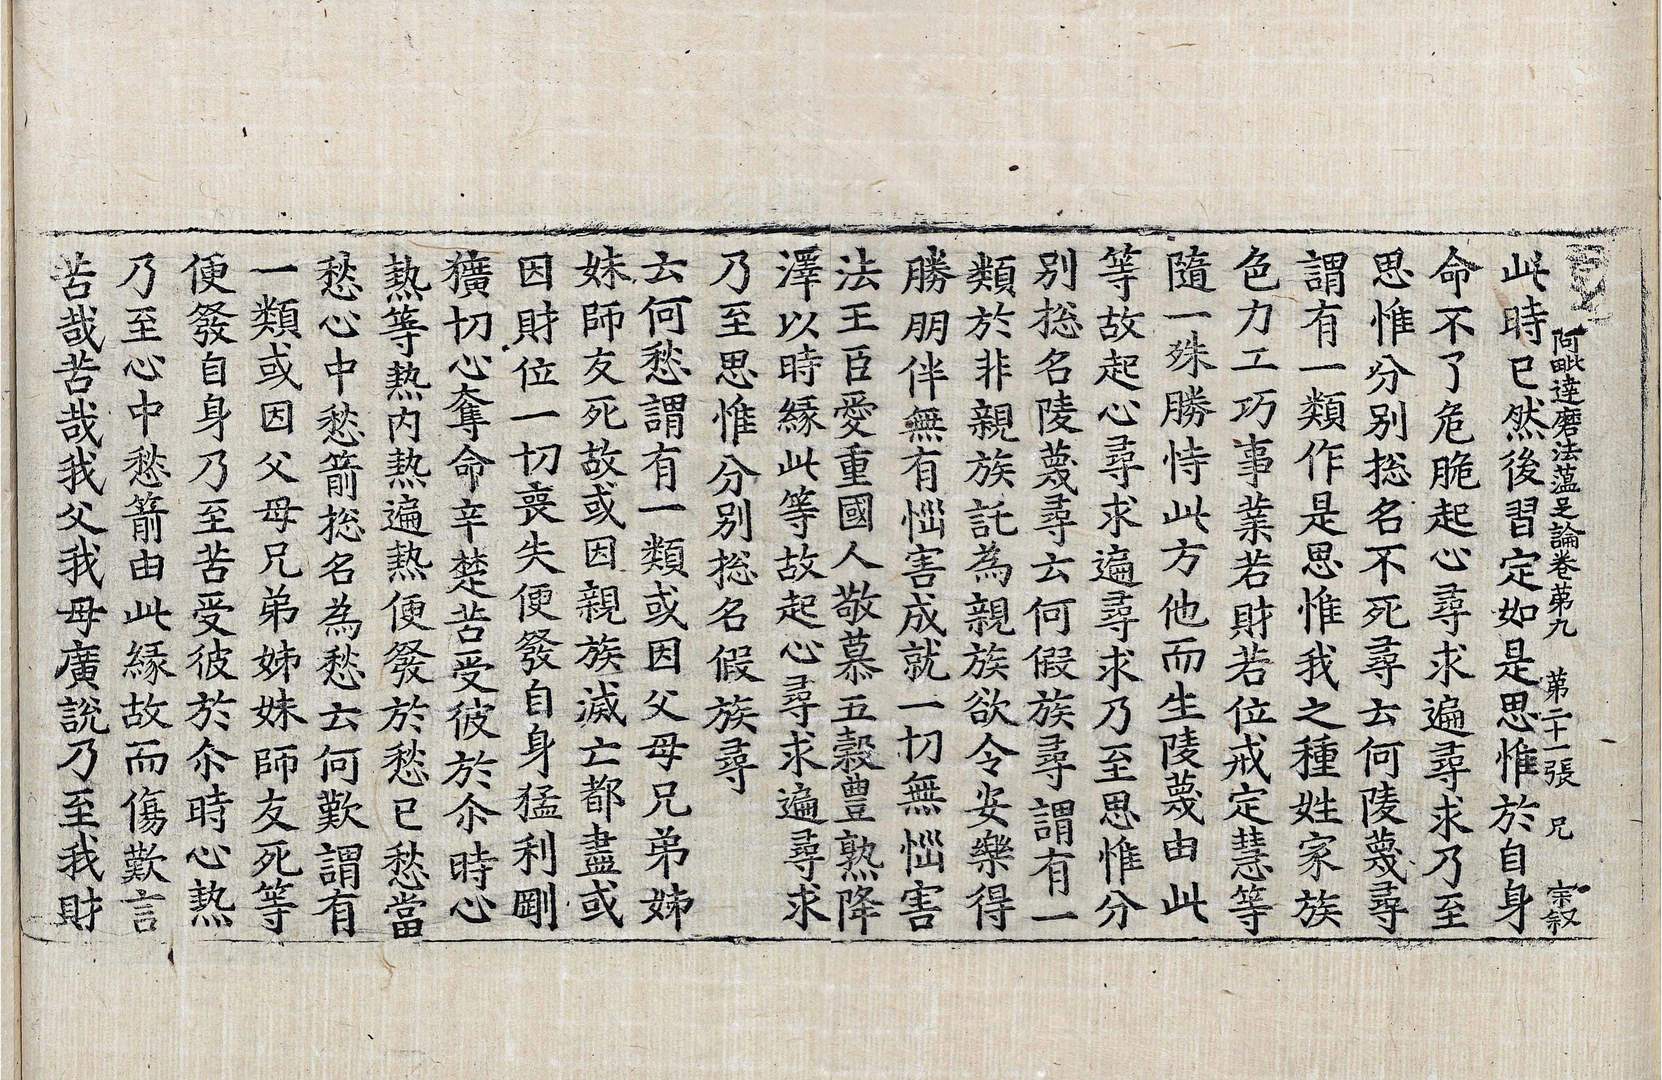 阿毗達磨法蕴足論卷第九　第二十一張　兄　宗叙
此時已然後習定如是思惟於自身
命不了危脆起心尋求遍尋求乃至
思惟分别捴名不死尋云何陵蔑尋
謂有一類作是思惟我之種姓家族
色力工巧事業若財若位戒定慧等
隨一殊勝恃此方他而生陵蔑由此
等故起心尋求遍尋求乃至思惟分
别捴名陵蔑尋云何假族尋謂有一
類於非親族託為親族欲令安樂得
勝朋伴無有惱害成就一切無惱害
法王臣愛重國人敬慕五穀豊熟降
澤以時緣此等故起心尋求遍尋求
乃至思惟分别捴名假族尋
云何愁謂有一類或因父母兄弟姊
妹師友死故或因親族滅亡都盡或
因財位一切喪失便發自身猛利剛
獷切心奪命辛楚苦受彼於尒時心
熱等熱內熱遍熱便發於愁已愁當
愁心中愁箭捴名為愁云何歎謂有
一類或因父母兄弟姊妹師友死等
便發自身乃至苦受彼於尒時心熱
乃至心中愁箭由此緣故而傷歎言
苦哉苦哉我父我母廣說乃至我財